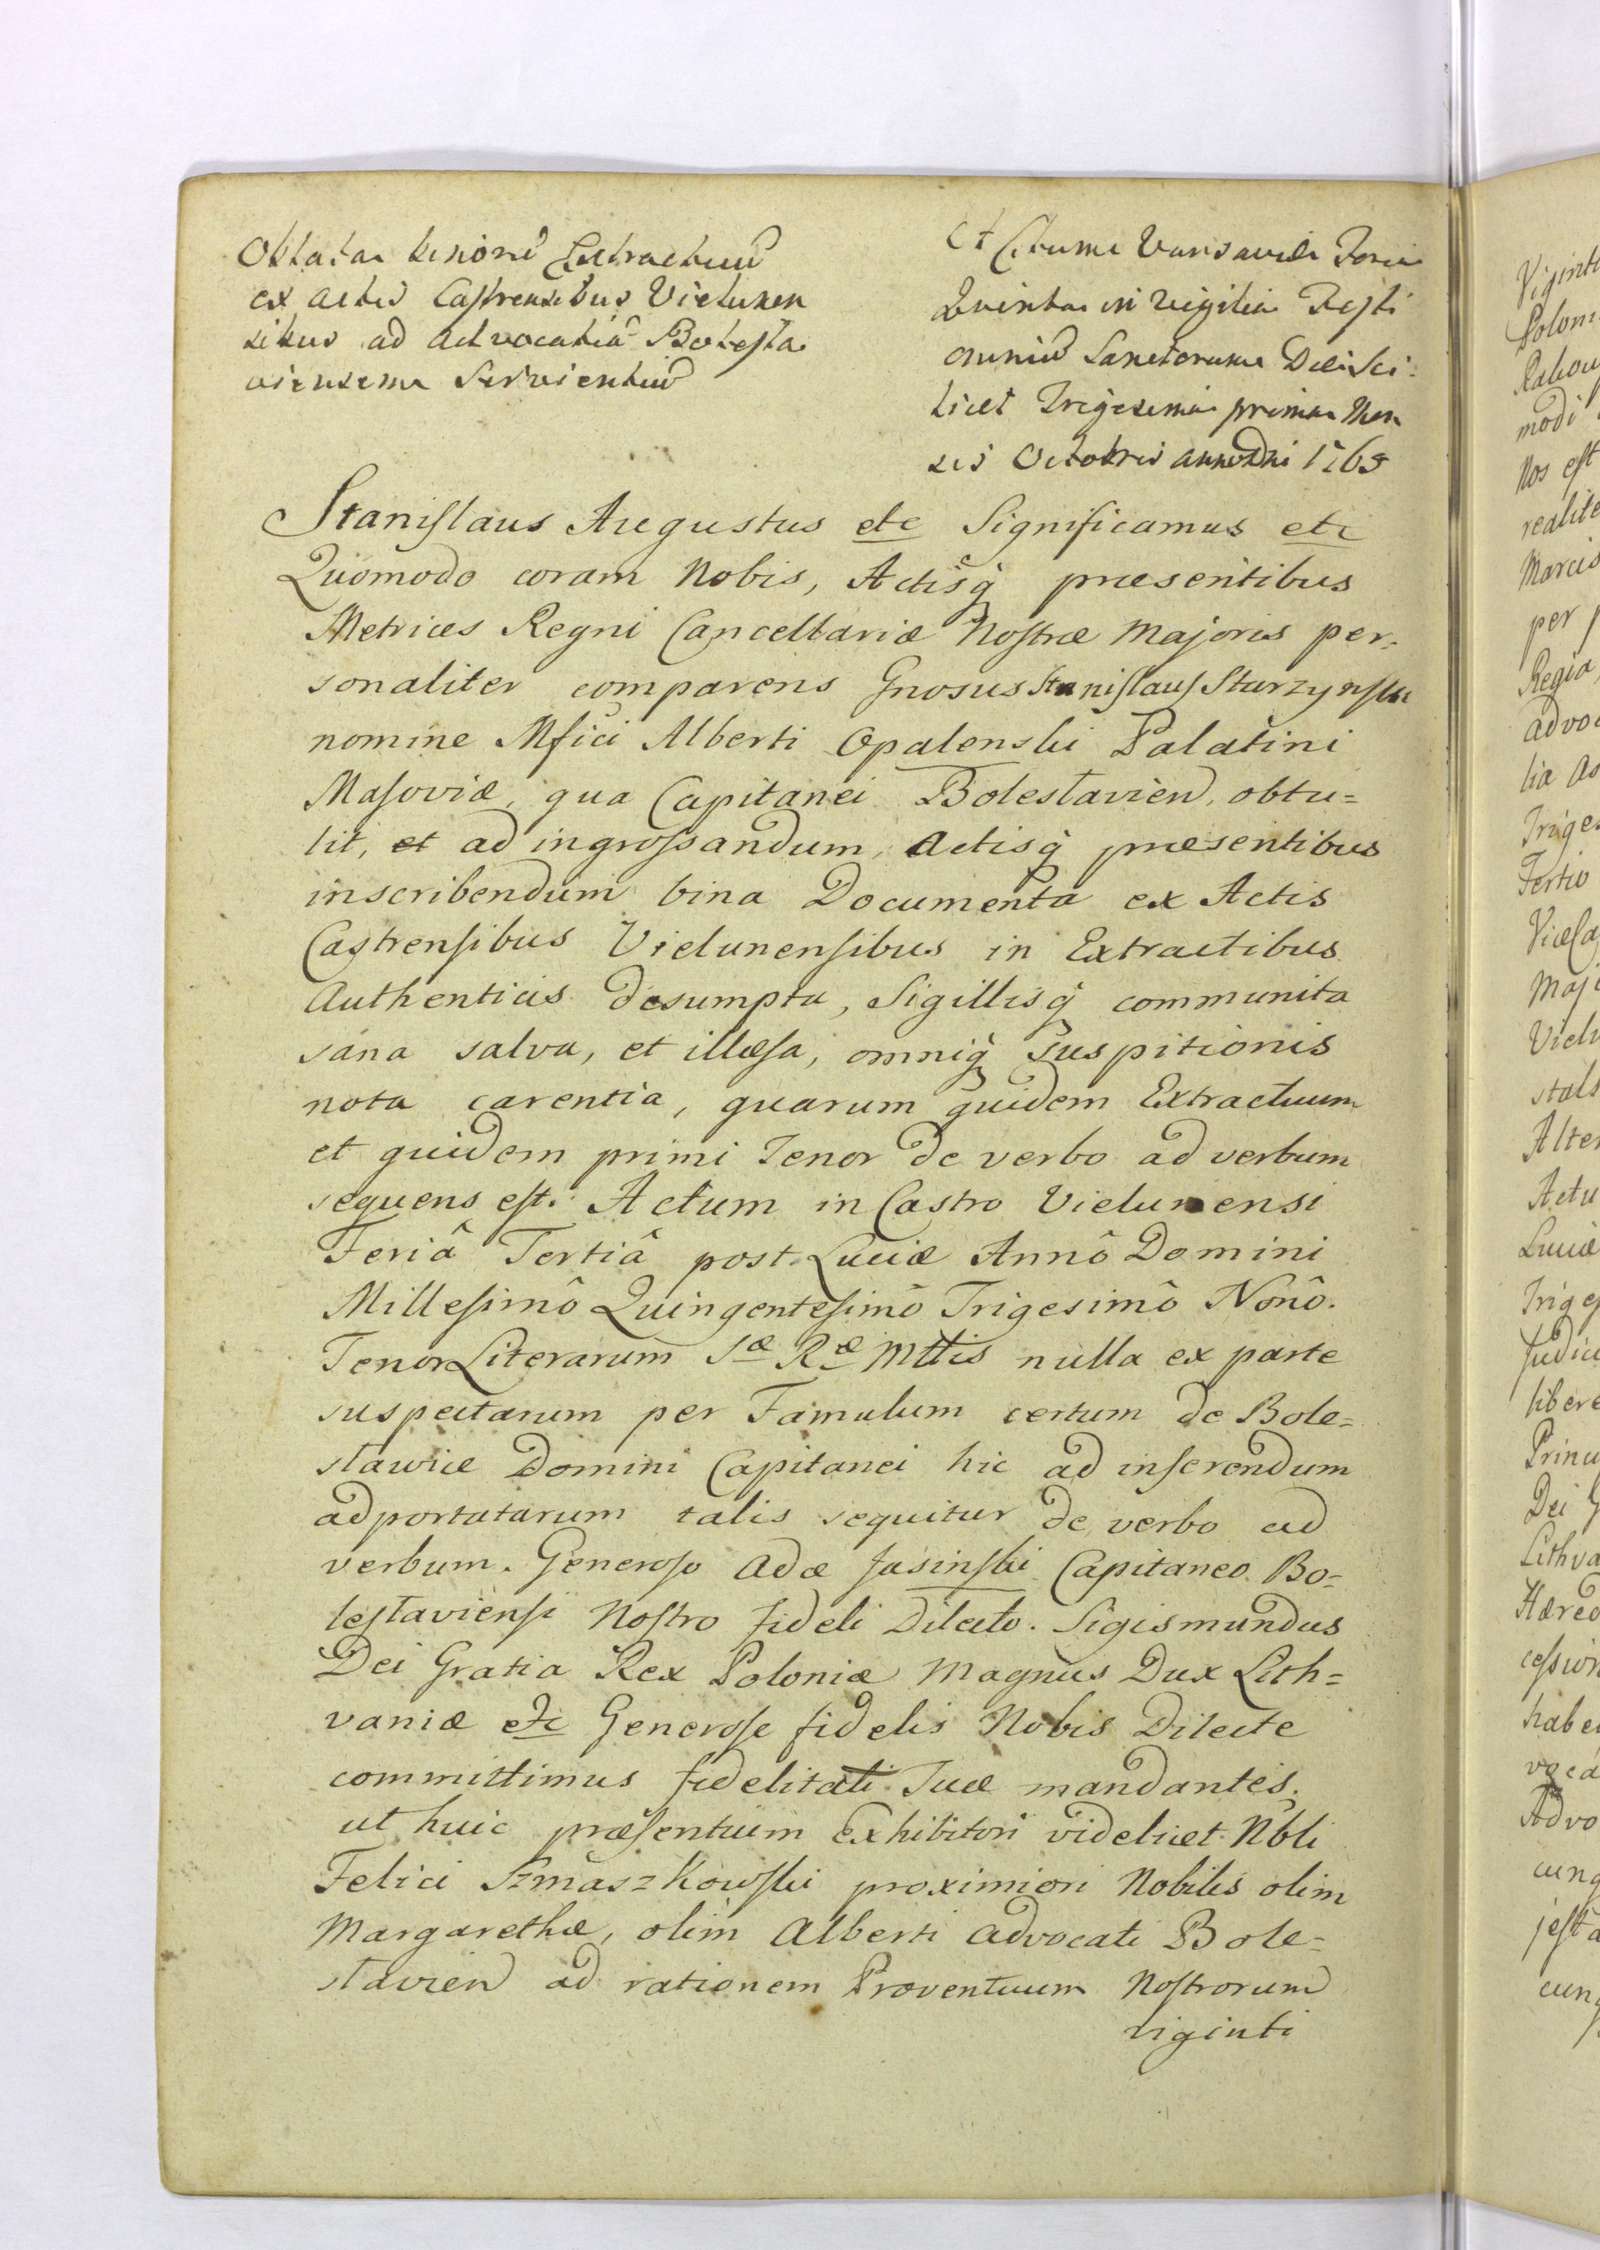 Oblata tenoru Extractuum
ex actis Castrensibus Vielunen
sibus ad advocatiã Bolesła
viensem Servientiu
Actum Varsaviæ Feria
Quinta in Vigilia Festi
omniu Sanctorum Die Sci:
licet Trigesima prima Men
sis Octobris anno Dni 1765
Stanislaus Augustus etc Significamus etc
Quomodo coram Nobis, Actisq̀ præsentibus
Metrices Regni Cancellariæ Nostræ Majoris per-
sonaliter comparens Gnosus Stanislaus Starzynski
nomine Mfici Alberti Opalenski Palatini
Masoviæ, qua Capitanei Boleslavien, obtu=
lit, et ad ingrossandum, Actisq̀ præsentibus
inscribendum bina Documenta ex Actis
Castrensibus Vielunensibus in Extractibus
Authenticis desumpta, Sigillisq̀ communita
sana salva, et illæsa, omniq̀ Suspitionis
nota carentia, quarum quidem Extractuum
et quidem primi Tenor de verbo ad verbum
sequens est: Actum in Castro Vielunensi
Feriâ Tertiâ post Luciæ Annô Domini
Millesimô Quingentesimô Trigesimô Nonô.
Tenor Literarum Sæ Ræ Mttis nulla ex parte
suspectarum per Famulum certum de Bole=
slawice Domini Capitanei hic ad inserendum
adportatarum talis sequitur de verbo ad
verbum. Generoso Adæ Jasinski Capitaneo Bo=
leslaviensi Nostro fideli Dilecto. Sigismundus
Dei Gratia Rex Poloniæ Magnus Dux Lith=
vaniæ etc Generose fidelis Nobis Dilecte
committimus fidelitati Tuæ mandantes.
ut huic præsentium exhibitori videlicet Nbli
Felici Szmaszkowski proximiori Nobilis olim
Margarethæ, olim Alberti Advocati Bole=
slavien ad rationem Proventuum Nostrorum
viginti